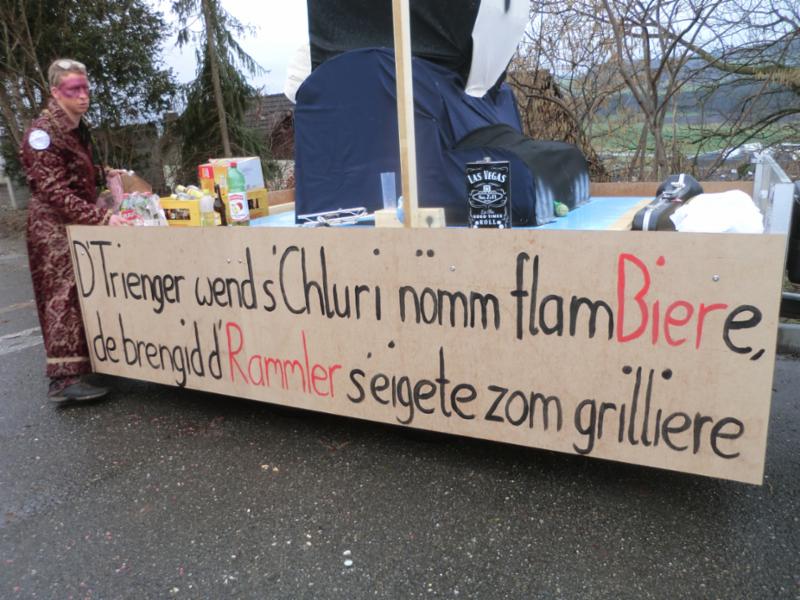 LAS VEGAS
GOOD TIMES
ROLL
D'Trienger wend s'Chluri nömm flamBiere,
de brengid d'Rammler s'eigete zom grilliere